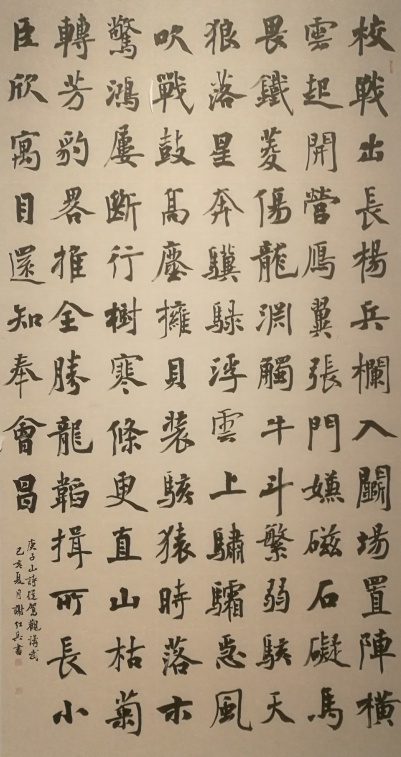 校戰出長楊兵欄入鬭場置陣橫
雲起開營鴈翼張門嫌磁石礙馬
畏鐵菱傷龍淵觸牛斗繁弱駭天
狼落星奔驥騄浮雲上驌驦急風
吹戰鼓髙塵擁貝裝駭猿時落木
驚鴻屢斷行樹寒條更直山枯菊
轉芳豹畧推全勝龍韜揖所長小
臣欣寓目還知奉會昌
庾子山詩從駕觀講武
己亥夏月謝紅兵書